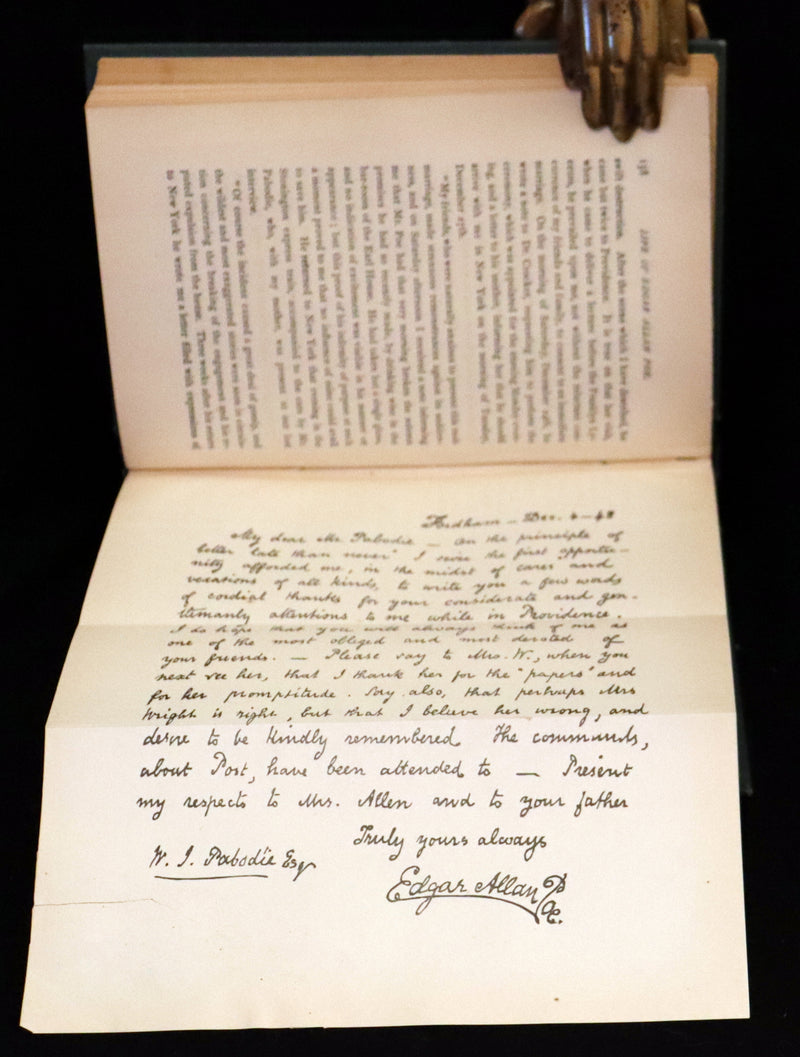 LIFE OF EDGAR ALLAN POE.
swift destruction. After the scene which I have described, he
came but twice to Providence. It is true on that last visit,
when he came to deliver a lecture before the Franklin Ly-
ceum, he prevailed upon me, not without the reluctant con-
currence of my friends and family, to consent to an immediate
marriage. On the morning of Saturday, December he
wrote a note to Dr. Crocker, requesting him to perform the
ceremony, which was appointed for the ensuing Monday even-
ing, and a letter to his mother, informing her that he should
arrive with me in New York on the morning of Tuesday,
December
"My friends, who were naturally anxious to prevent this rash
marriage, made strenuous remonstrances against its sudden-
ness, and on Saturday afternoon I received a note informing
me that Mr. Poe had that very morning broken the solemn
promises he had so recently made, by drinking wine in the
bar-room of the Earl House. He had taken but a single glass,
and no indication of excitement was visible in his manner or
appearance; but this proof of his infirmity of purpose at such
a moment proved to me that no influence of mine could avail
to save him. He returned to New York that evening in the
Stonington express train, accompanied to the cars by Mr.
Pabodie, who, with my mother, was present at our last
interview.
"Of course the incident caused a great deal of gossip, and
the wildest and most exaggerated stories were soon in circula-
tion concerning the breaking of the engagement and his re-
puted expulsion from the house. Three weeks after his return
to New York he wrote me a letter filled with expressions of
Fordham – Dec. 4 – 48
My dear Mr. Pabodie – On the principle of
better late than never" I seize the first opportu-
nity afforded me, in the midst of cares and
vexations of all kinds, to write you a few words
of cordial thanks for your considerate and gen-
tlemanly attentions to me while in Providence.
I do hope that you will always think of me as
one of the most obliged and most devoted of
your friends. — Please say to Mrs. W., when you
next see her, that I thank her for the "papers" and
for her promptitude. Say, also, that perhaps Mrs
Wright is right, but that I believe her wrong, and
desire to be kindly remembered. The commands,
about Post, have been attended to — Present
my respects to Mrs. Allen and to your father
Truly yours always
W. J. Pabodie Esqr
Edgar Allan Poe.